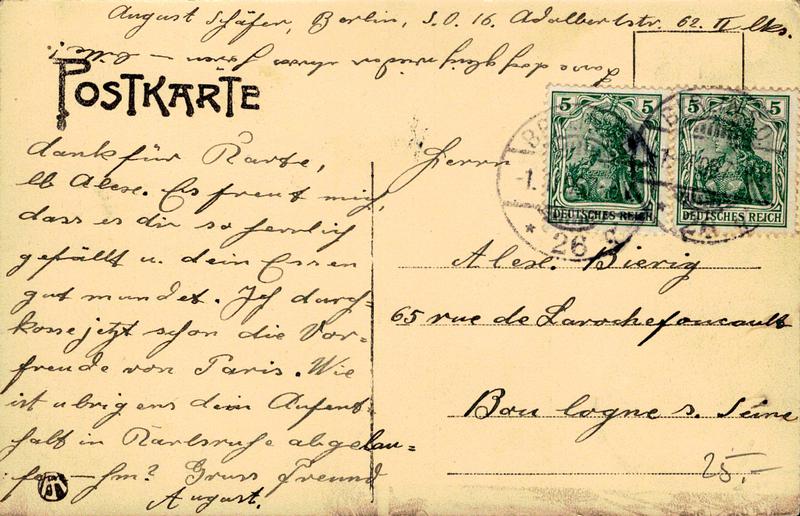 August Schäfer, Berlin, S.O. 16. Adalbertstr. 62. II lks.
Lass doch gleich wieder etwas hören – bitte!
POSTKARTE
dank für Karte,
lb Alex. Es freut mich,
dass es dir so herrlich
gefällt u. dein Essen
gut mundet. Ich durch-
koste jetzt schon die Vor-
freude von Paris. Wie
ist übrigens dein Aufent-
halt in Karlsruhe abgelau-
fen – hm? Gruss Freund
August.
Herrn
5 5
DEUTSCHES REICH
5 5
DEUTSCHES REICH
-1.
* 26
Alex. Bierig
65 rue de Larochefoucault
Boulogne s. Seine
25.-